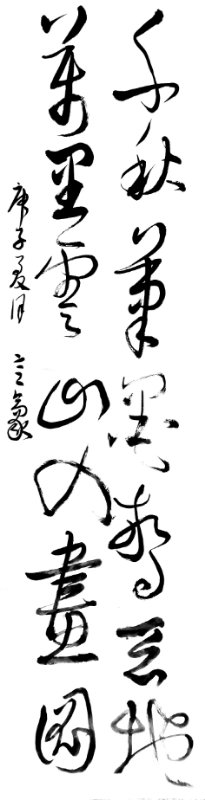 千秋筆墨驚天地
萬里雲山入畫圖
庚子夏月 言象